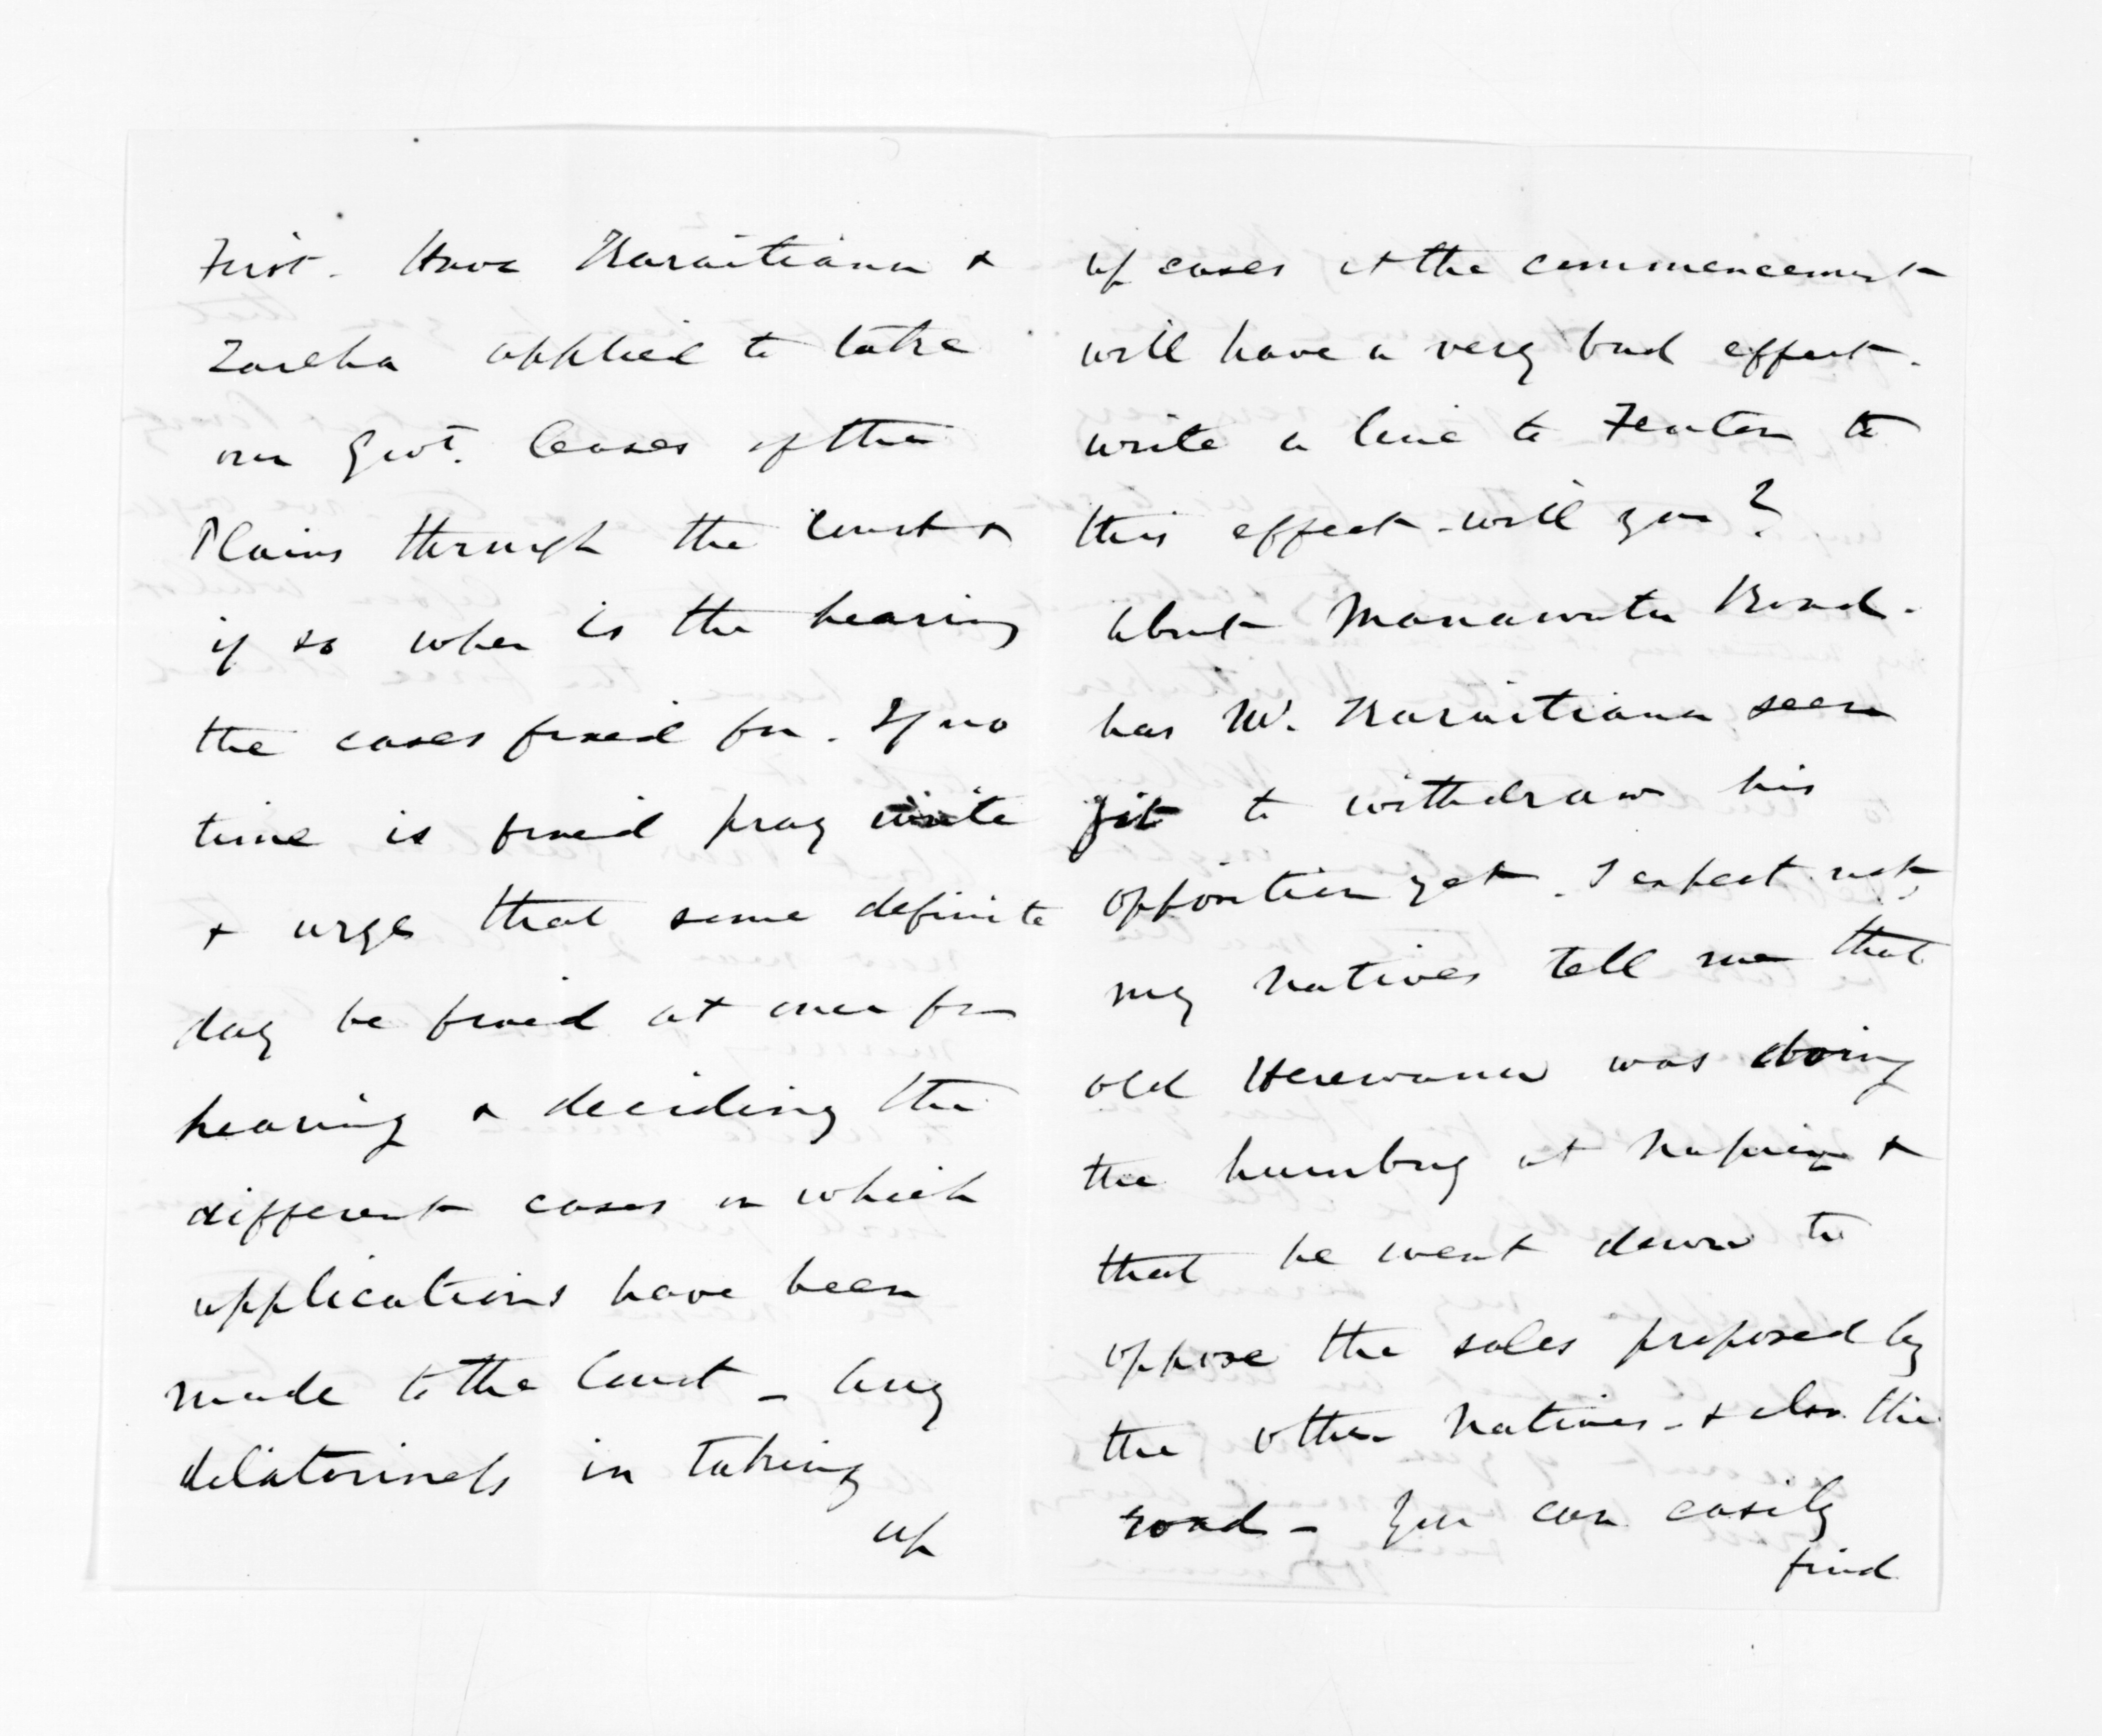 First. Have Karaitiana &
Zareha applied to take
our Govt. leases of the
Plains through the Court &
if so when is the hearing
the cases fixed for. If no
time is fixed pray write
& urge that some definite
day be fixed at once for
hearing & deciding the
different cases in which
applications have been
made to the Court - Any
dilatoriness in taking
up
up cases at the commencement
will have a very bad effect.
write a line to Fenton to
this effect - will you?
About Manawatu Road.
has Karaitiana seen
fit to withdraw his
opposition yet. I expect not,
my natives tell me that
old Herewana was doing
the humbug at Napier &
that he went down to
oppose the sales proposed by
the other Natives - & also the
road - You can easily
find